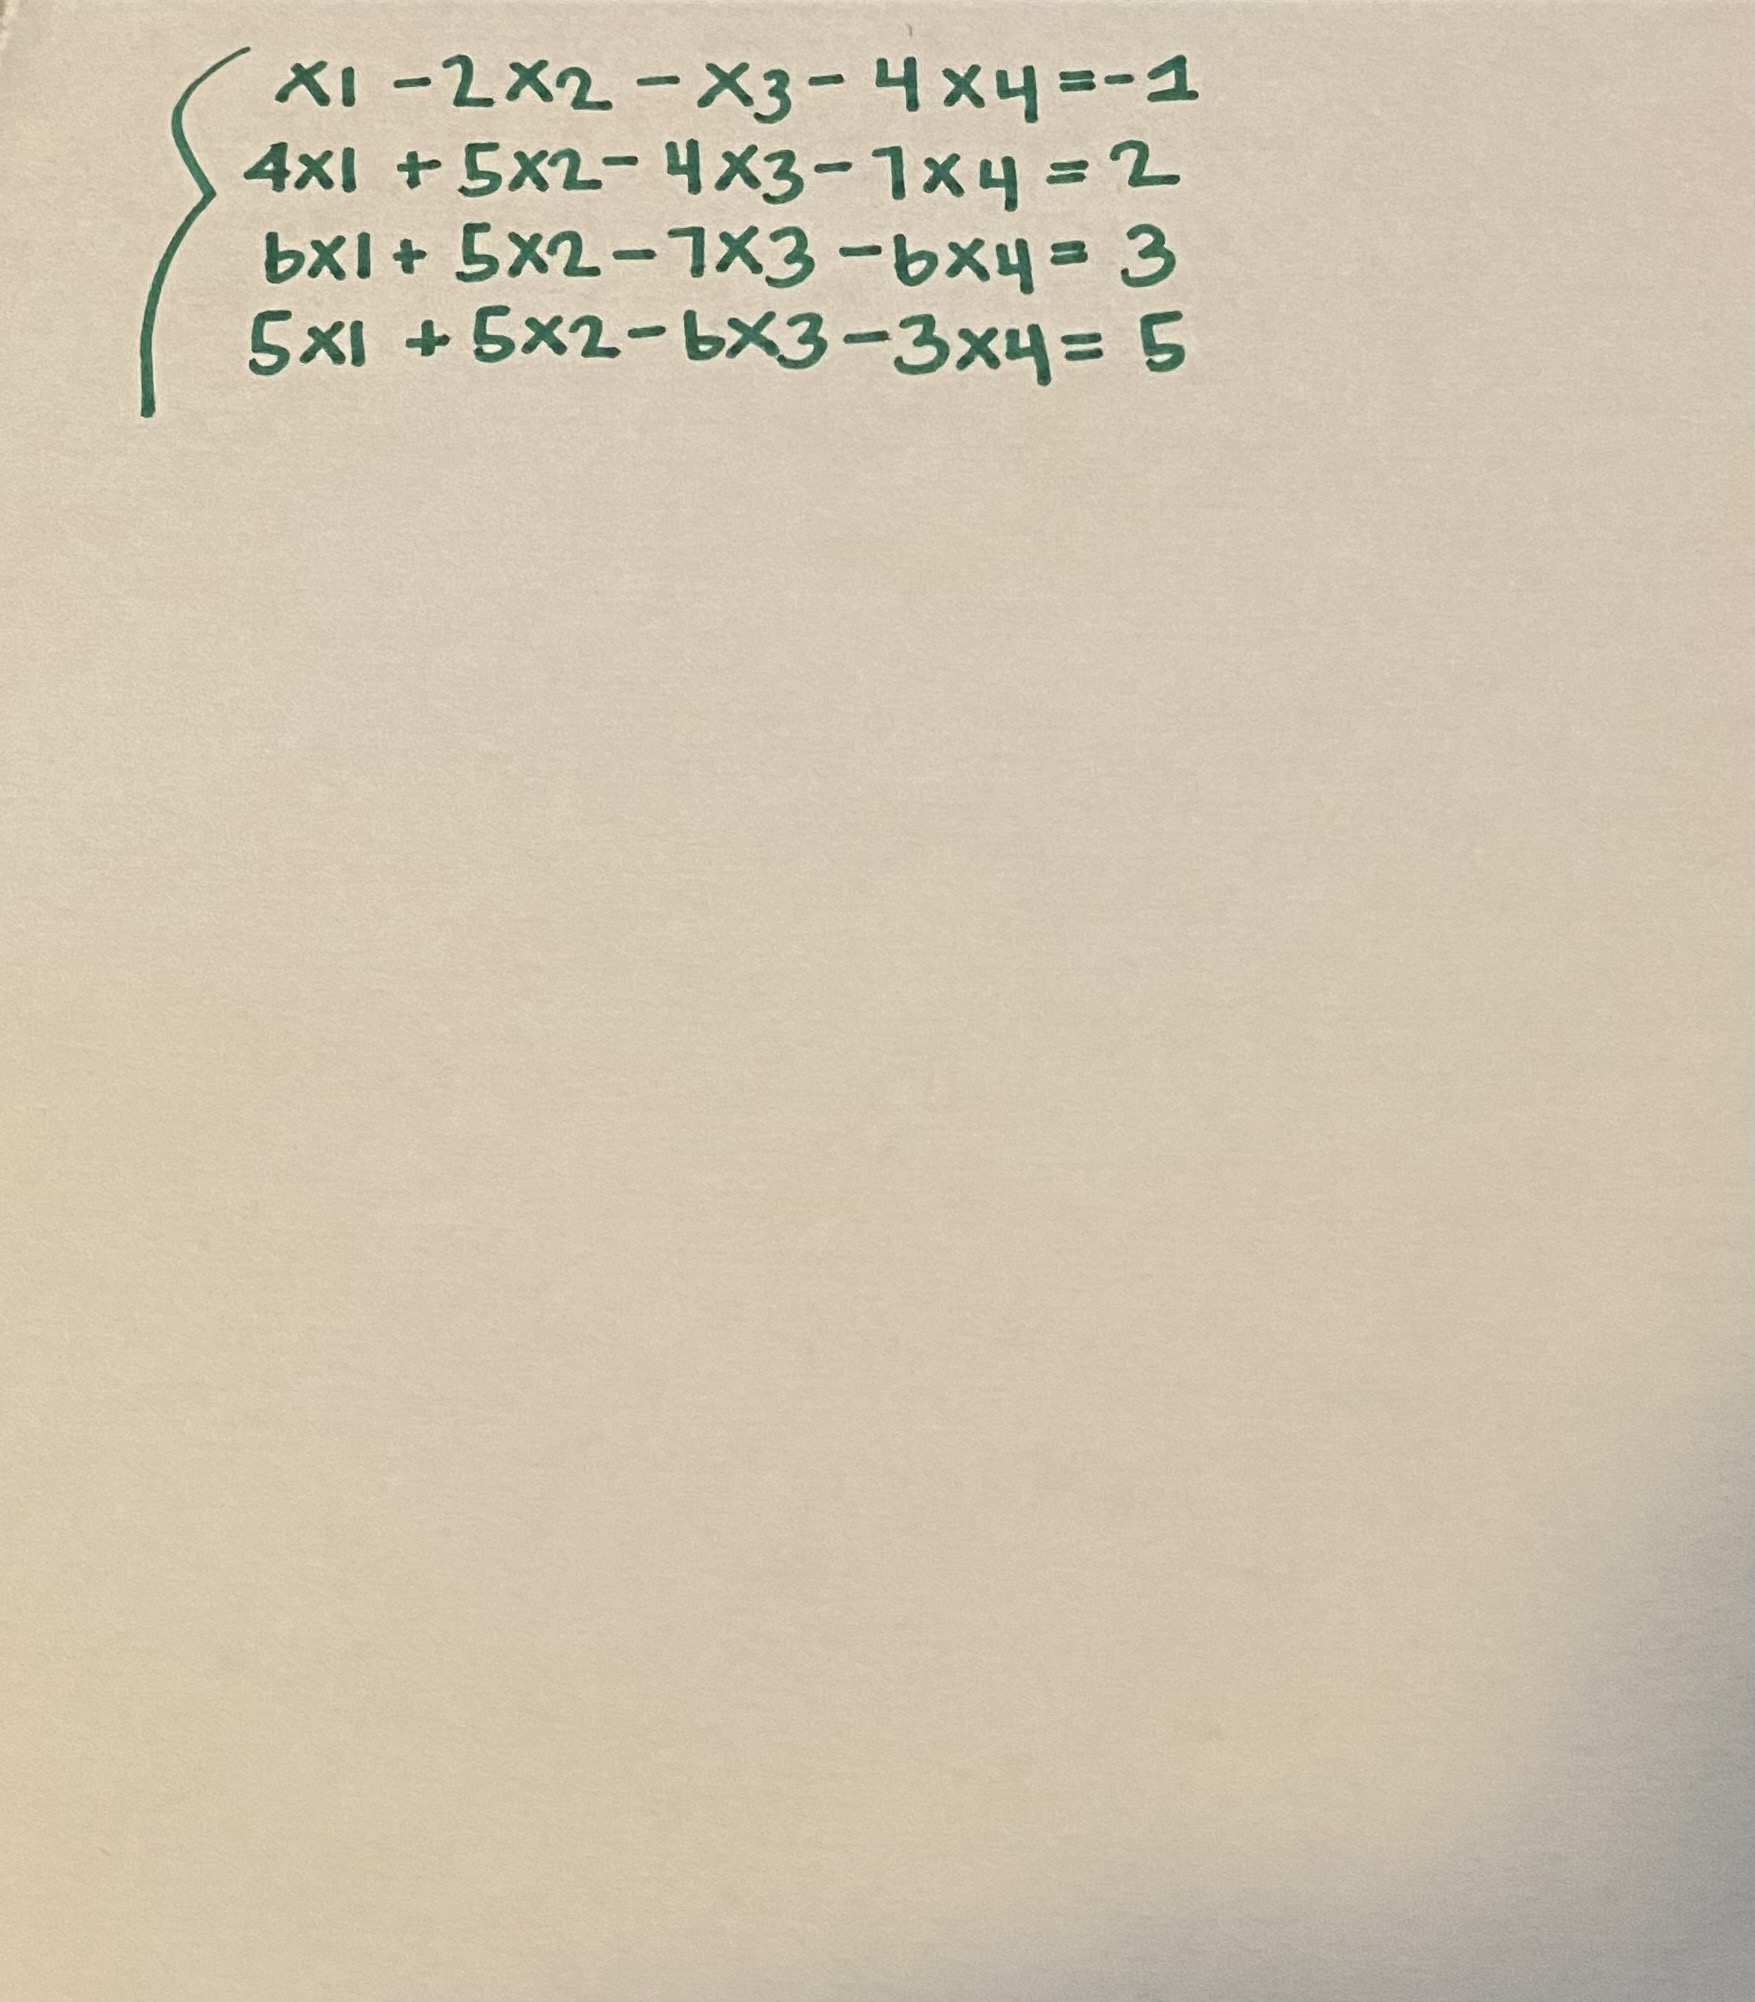 x1 - 2x2 - x3 - 4x4 = -1
4x1 + 5x2 - 4x3 - 7x4 = 2
6x1 + 5x2 - 7x3 - 6x4 = 3
5x1 + 5x2 - 6x3 - 3x4 = 5